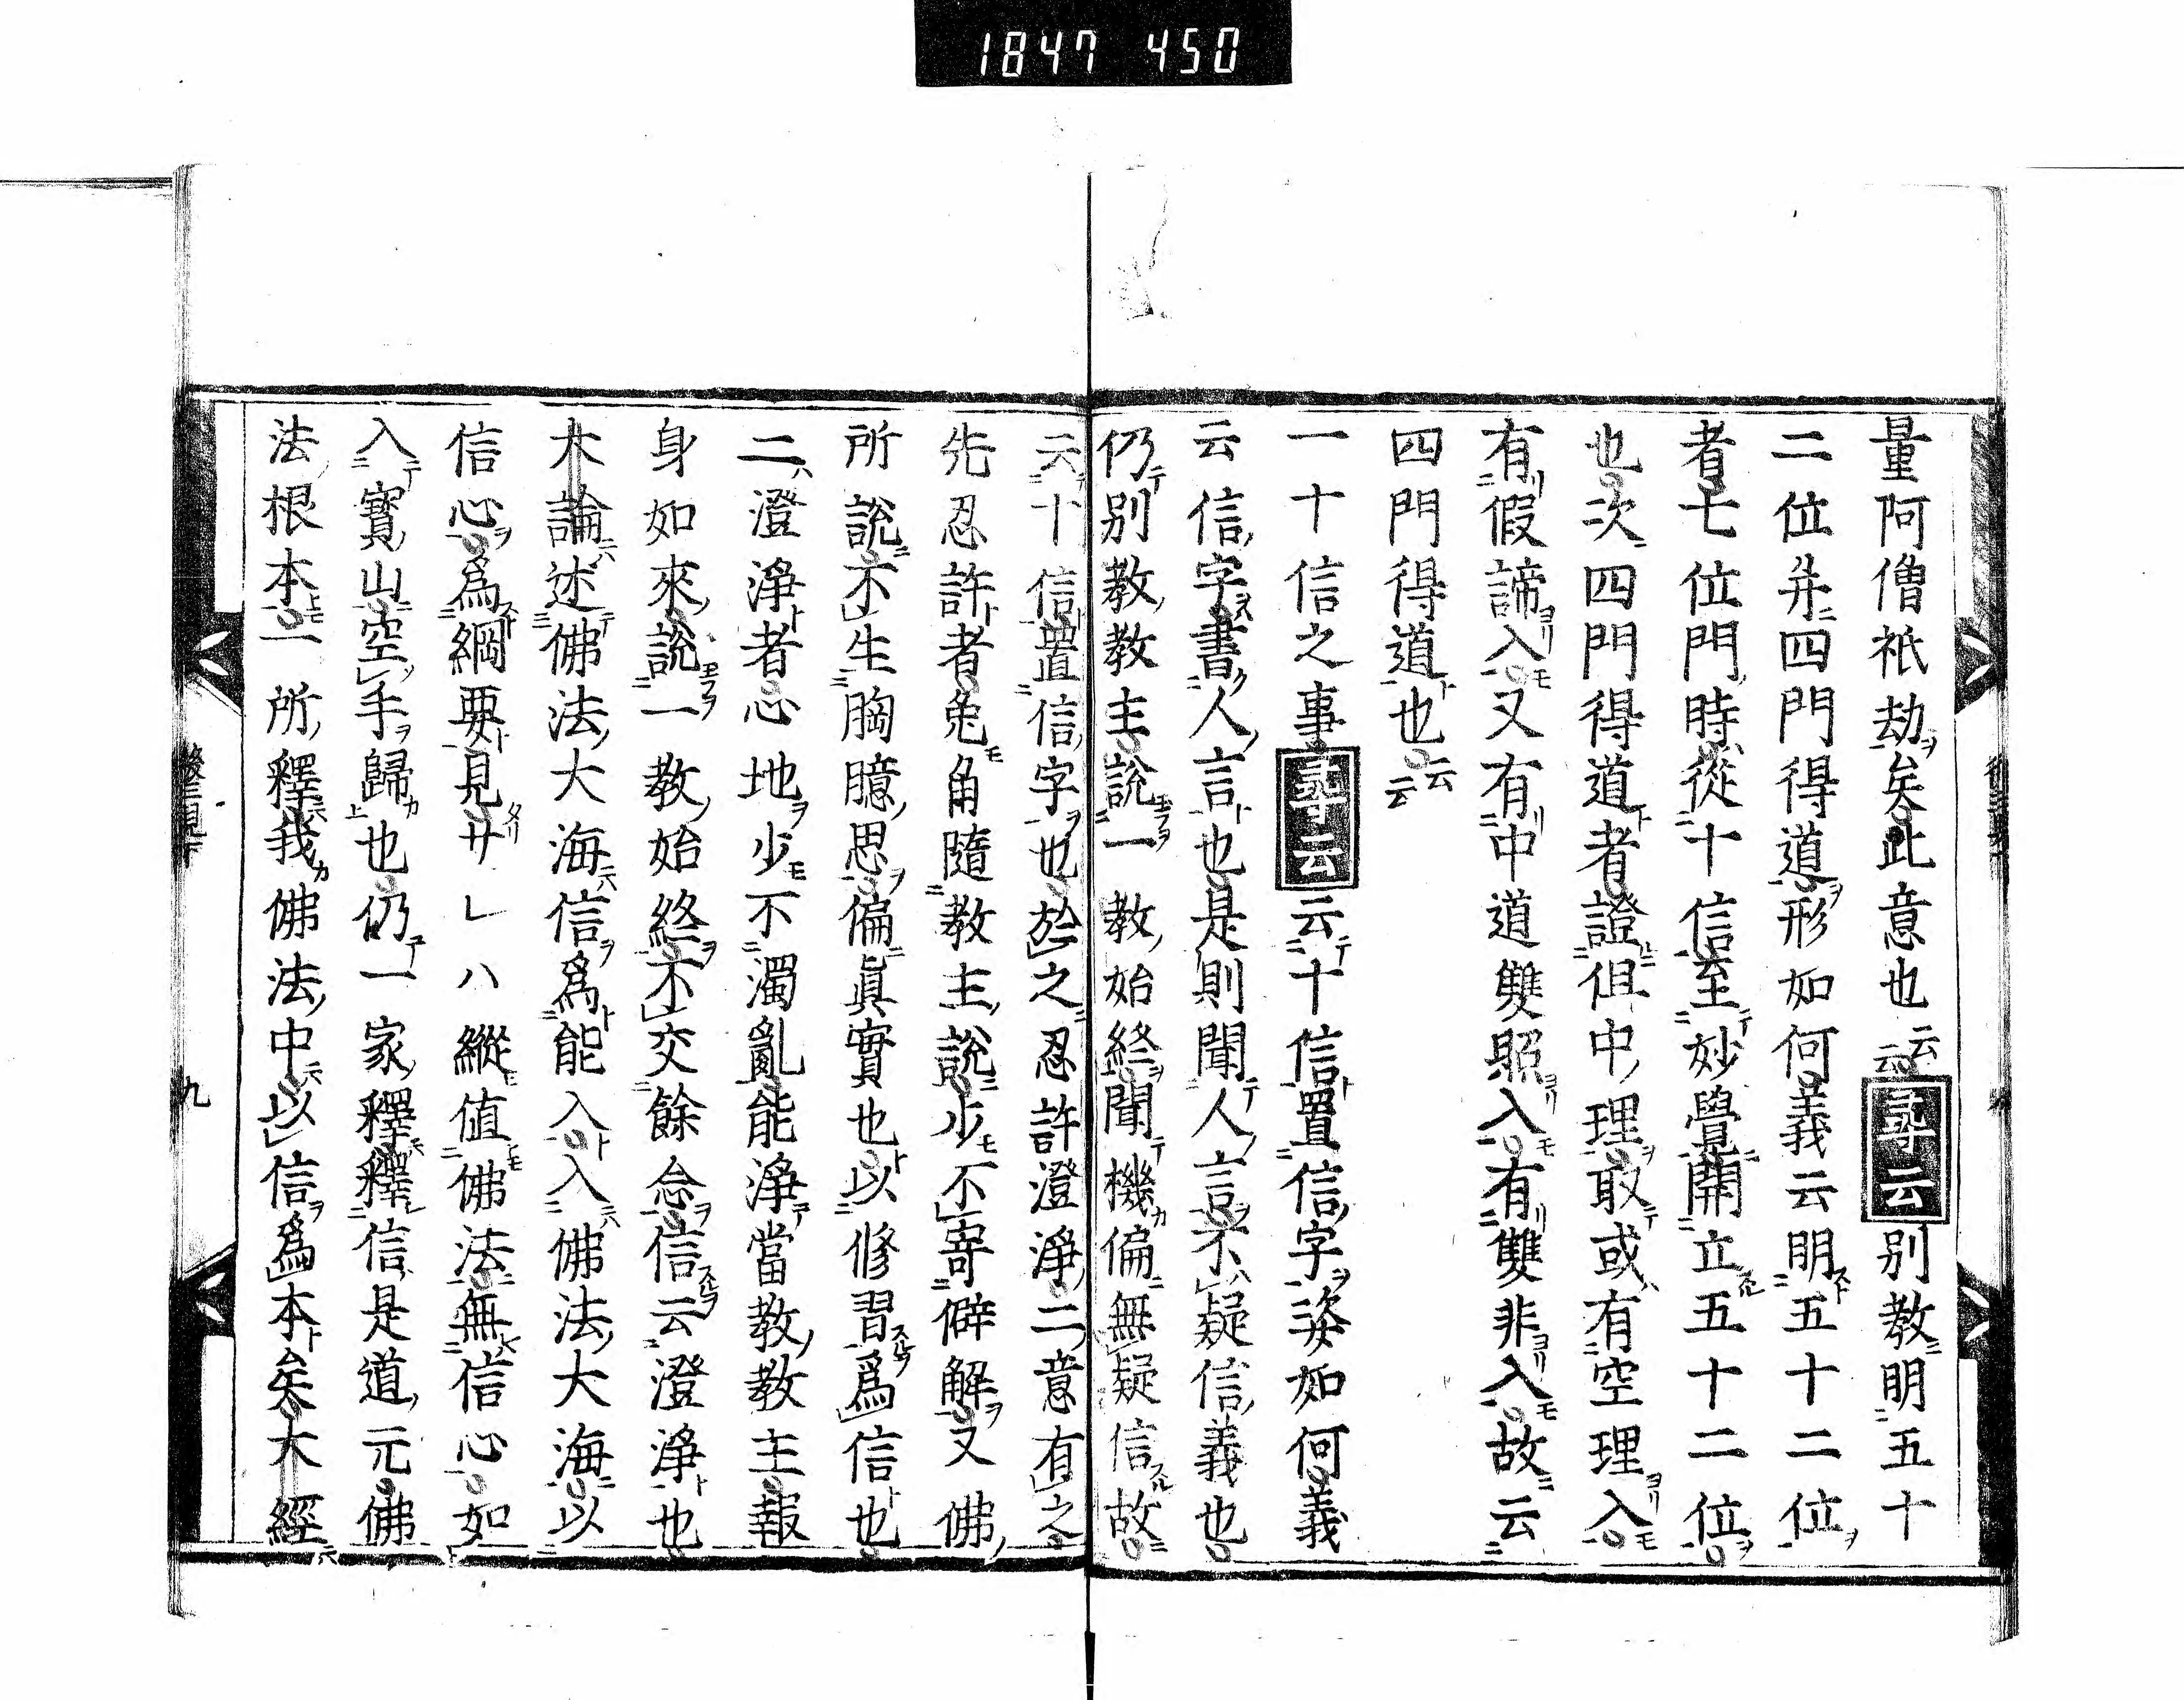 1847 450
量阿僧祇劫矣此意也云云尋云別教明五十
二位并四門得道形如何義云明五十二位
者七位門時從十信至妙覺開立五十二位
也次四門得道者證但中理取或有空理入
有假諦入又有中道雙照入有雙非入故云
四門得道也云云
一十信之事尋云云十信置信字姿如何義
云信字書人言也是則聞人言不疑信義也
仍別教教主說一教始終聞機偏無疑信故
云十信置信字也於之忍許澄淨二意有之
先忍許者兔角隨教主說少不寄僻解又佛
所說不生胸臆思偏眞實也以修習爲信也
二澄淨者心地少不濁亂能淨當教教主報
身如來說一教始終不交餘念信云澄淨也
大論述佛法大海信爲能入入佛法大海以
信心爲綱要見サレハ縱値佛法無信心如
入寳山空手歸也仍一家釋釋信是道元佛
法根本一所釋我佛法中以信爲本矣大經
九